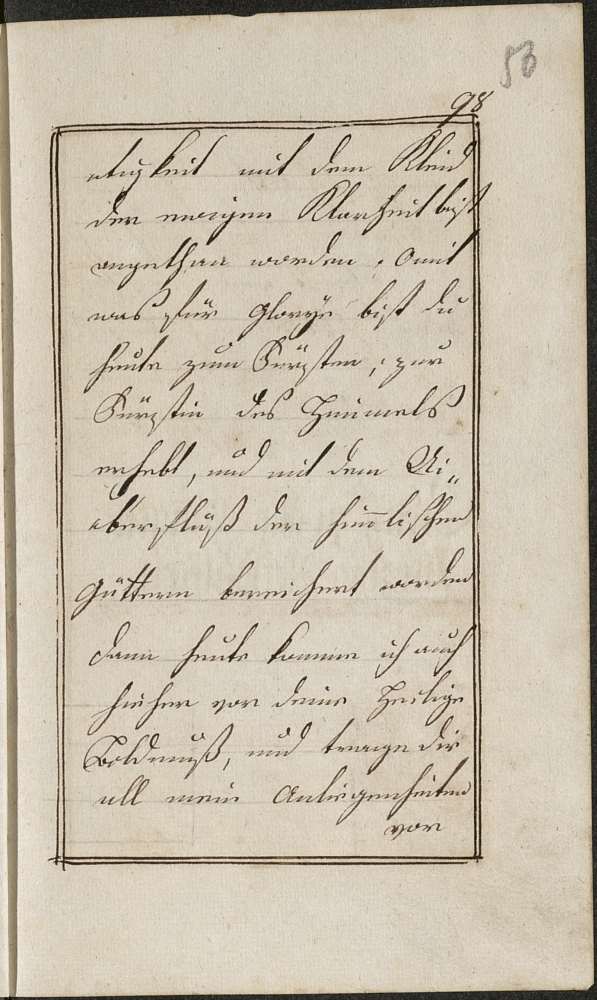 53
98
ntigkeit mit dem Kleid
der ewigen Klarheit bist
angethan worden, O mit
was für Glorye bist du
heute zum Fürsten, zur
Fürstin des Himmels
erhebt, und mit dem Ui„
berfluß der himlischen
Güttern bereichert worden
dann heute komme ich auch
hieher vor deine Heilige
Bildnuß, und trage dir
all meine Anliegenheiten
vor